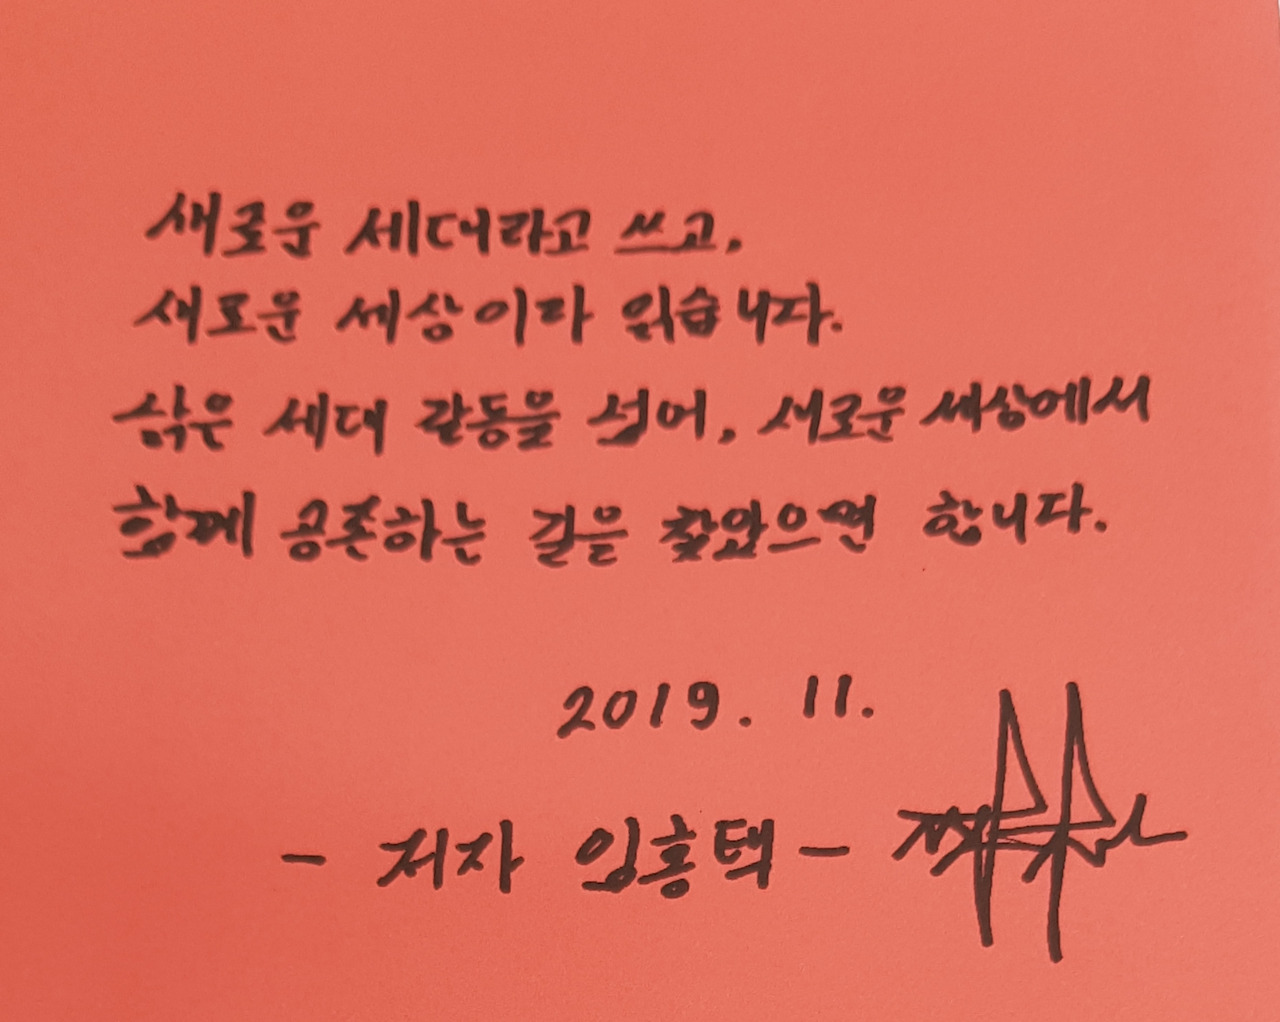 새로운 세대라고 쓰고,
새로운 세상이라 읽습니다.
낡은 세대 갈등을 넘어, 새로운 세상에서
함께 공존하는 길을 찾았으면 합니다.
2019. 11.
- 저자 임홍택 -